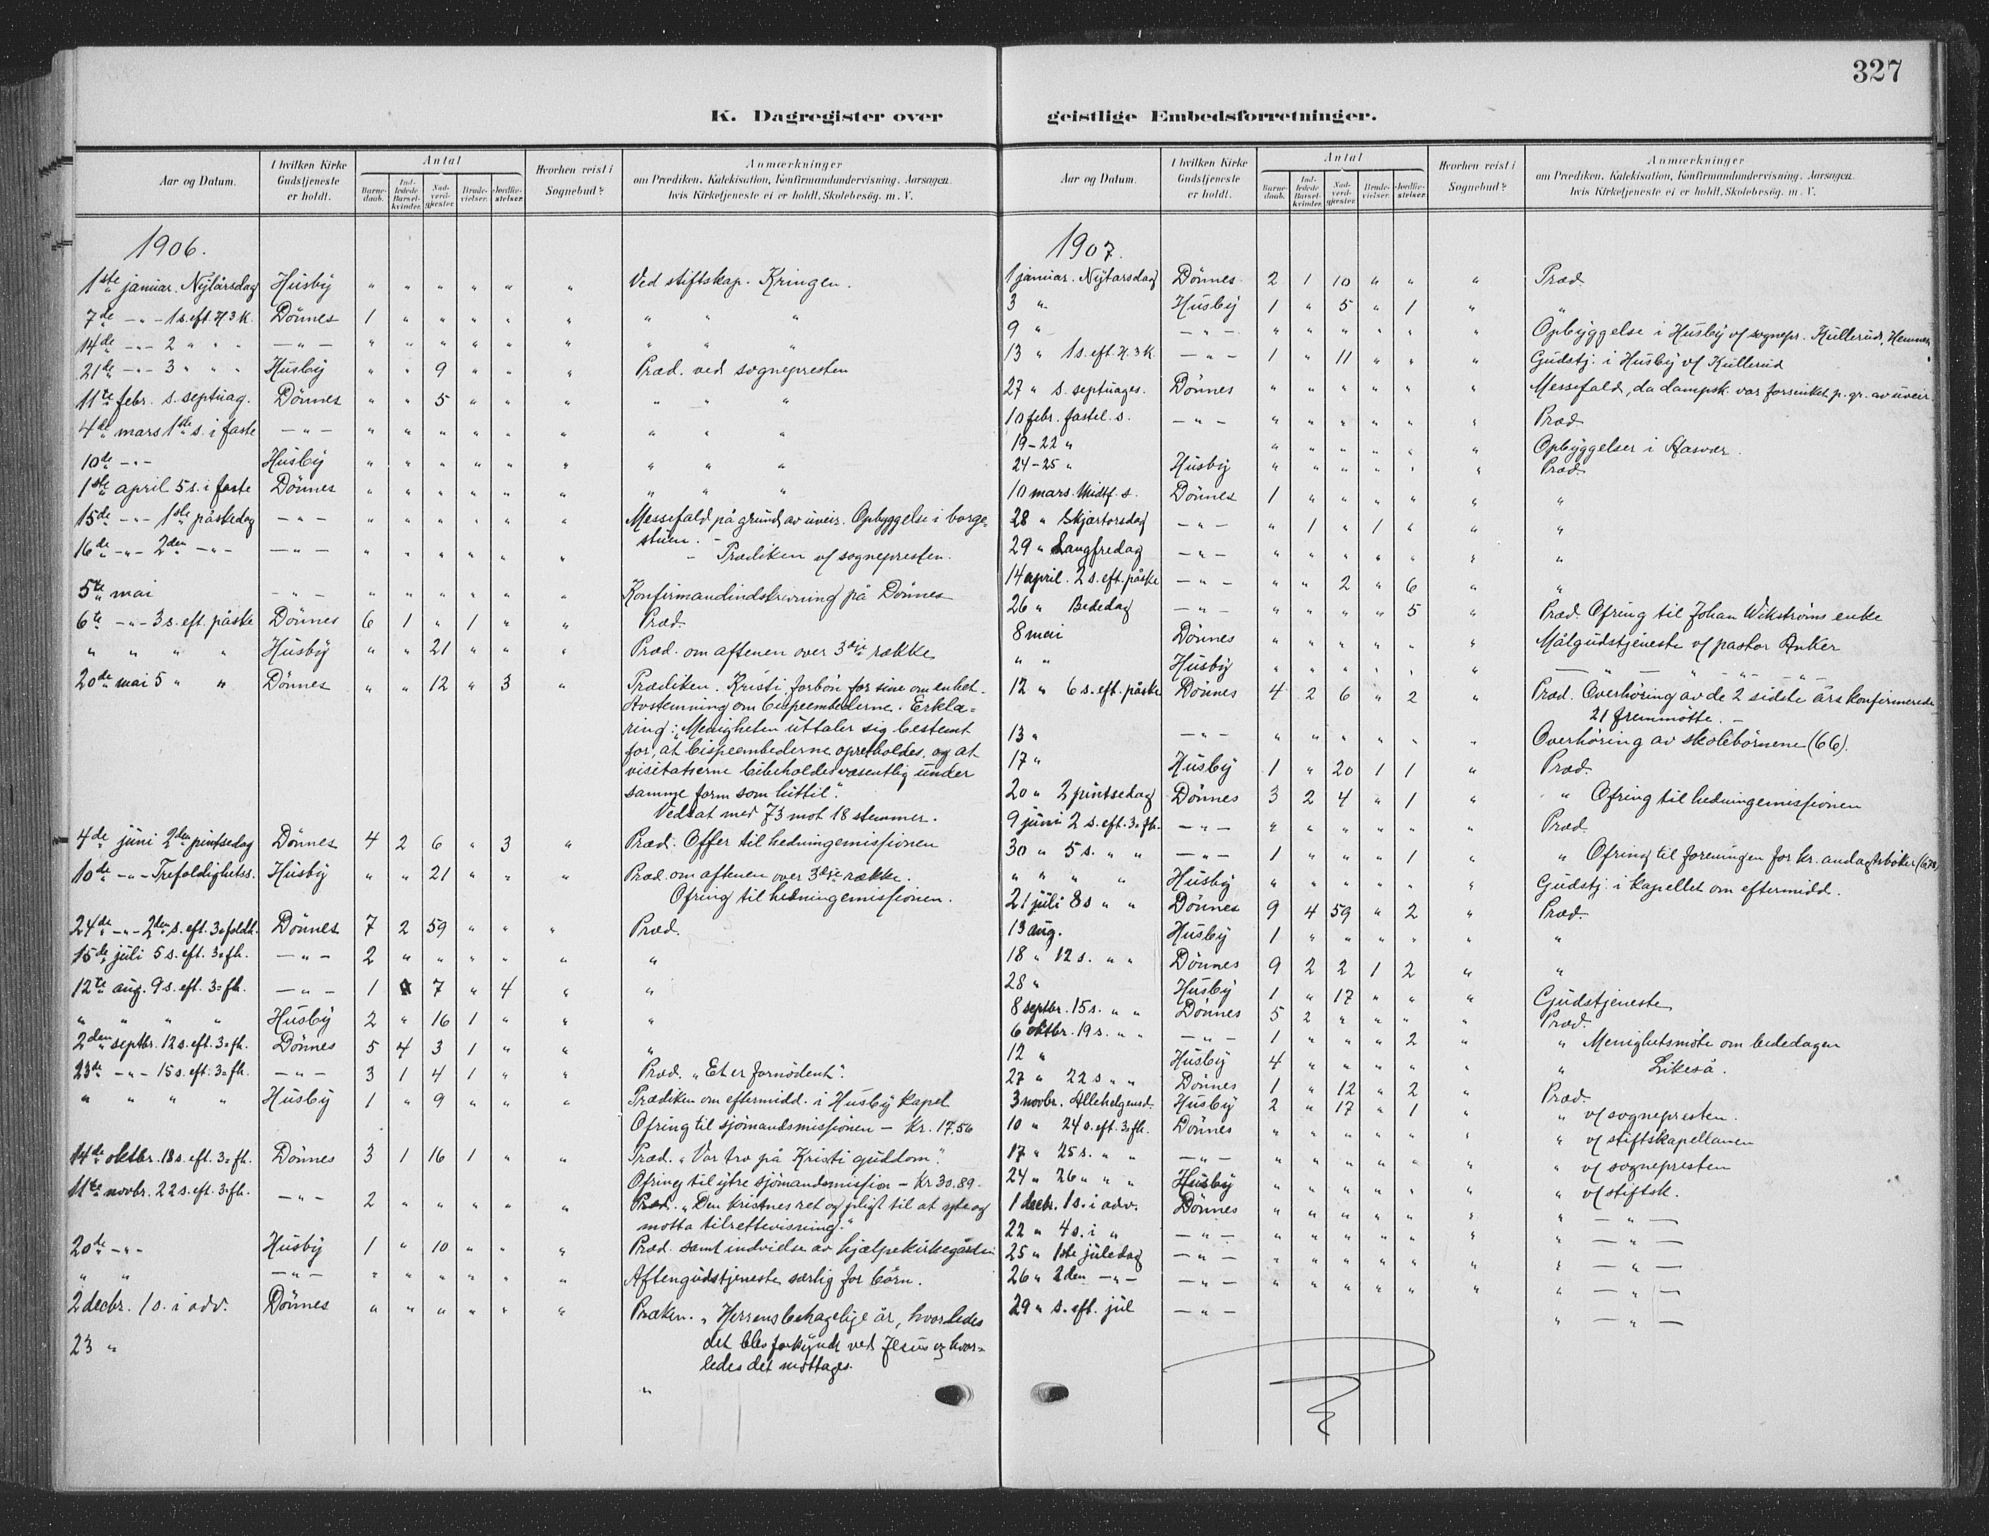 327
K. Dagregister over geistlige Embedsforretninger.
Aar og Datum. I hvilken Kirke Gudstjeneste er holdt. Antal Barnedaab. Indledede Barselkvinder. Nadverdgjester. Brudevielser. Jordfæstelser. Hvorhen reist i Sognebud? Anmærkninger om Prædiken, Katekisation, Konfirmandundervisning, Aarsagen hvis Kirketjeneste ei er holdt, Skolebesøg. m. V.
1906.
1ste januar. Nytårsdag Husby " " " " " " Ved stiftskap. Kringen.
7de -"- 1 s. eft. H 3 K. Dönnes 1 " " " " " " " "
14de -"- 2 " " " -"- " " " " " " " " "
21de -"- 3 " " " Husby " " 9 " " " Præd. ved sognepresten
11te febr. s. septuag. Dönnes " " 5 " " " " " "
4de mars 1ste s. i faste -"- " " " " " " " " "
10de -"- Husby " " " " " " " " "
1ste april 5 s. i faste Dönnes " " " " " " " " "
15de -"- 1ste påskedag -"- " " " " " " Messefald på grund av uveir. Opbyggelse i borge-
stuen. -
16de -"- 2den -"- -"- " " " " " " - Prædiken v/ sognepresten.
5te mai -"- " " " " " " Konfirmandindskrivning på Dönnes
6te -"- 3 s. eft. påske Dönnes 6 1 " 1 " " Præd.
" " " " Husby " " 21 " " " Præd. om aftenen over 3dje række
20de mai 5 " " Dönnes " " 12 " 3 " Prædiken. Kristi forbön for sine om enhet.
Avstemning om bispeembederne. Erklæ-
ring: "Menigheten uttaler sig bestemt
for, at bispeembederne opretholdes, og at
visitatserne bibeholdes væsentlig under
samme form som hittil".
Vedtat med 73 mot 18 stemmer.
4de juni 2den pintsedag Dönnes 4 2 6 " 3 " Præd. Offer til hedningemissionen
10de -"- Trefoldighetss. Husby " " 21 " " " Præd. om aftenen over 3dje række.
Ofring til hedningemissionen.
24de -"- 2den s. eft. 3-foldh. Dönnes 7 2 59 " " " Præd.
15de juli 5 s. eft. 3-fh. -"- 2 " " " " " "
12te aug. 9 s. eft. 3-fh. -"- 1 7 " 4 " "
" " " " Husby 2 " 16 1 " " "
2den septbr. 12 s. eft. 3-fh. Dönnes 5 4 3 1 " " "
23de -"- 15 s. eft. 3-fh. -"- 3 1 4 1 " " Præd. "Et er fornödent".
" " " " Husby 1 " 9 " " " Prædiken om eftermidd. i Husby kapel
Ofring til sjömandsmissionen - Kr. 17.56
14de oktbr. 18 s. eft. 3-fh. Dönnes 3 1 16 1 " " Præd. "Vor tro på Kristi guddom."
Ofring til ytre sjömandsmission - Kr 30.89-
11te novbr. 22 s. eft. 3-fh. -"- 2 " " " " " Præd. "Den kristnes ret og pligt til at yte og
motta tilrettevisning."
20de -"- Husby 1 " 10 " " " Præd. samt indvielse av hjælpekirkegården
" " -"- " " " " " " Aftengudstjeneste særlig for börn.
2 decbr. 1 s. i adv. Dönnes " " " " " " Præken. "Herrens behagelige år, hvorledes
23 " det blev forkyndt ved Jesus og hvor-
ledes det mottages.
"
Aar og Datum. I hvilken Kirke Gudstjeneste er holdt. Antal Barnedaab. Indledede Barselkvinder. Nadverdgjester. Brudevielser. Jordfæstelser. Hvorhen reist i Sognebud? Anmærkninger om Prædiken, Katekisation, Konfirmandundervisning, Aarsagen hvis Kirketjeneste ei er holdt, Skolebesøg. m. V.
1907.
1 januar. Nytarsdag Dönnes. 2 1 10 " " " Præd
3 " Husby 1 " 5 " 1 " "
9 " -"- " " " " " " Opbyggelse i Husby v/ sognepr. Kullerud, Hemnes
13 " 1 s. eft. H. 3 K. -"- 1 " 11 " " " Gudstj. i Husby v/ Kullerud
27 " s. septuages. Dönnes " " " " " " Messefald, da dampsk. var forsinket p. gr. av uveir.
10 febr. fastel. s. -"- " " " " " " Præd
19-22 " " " " " " " Opbyggelser i Aasvær.
24-25 " Husby " " " " " " Præd.
10 mars. Midtf. s. Dönnes 1 " " " " " "
28 " Skjærtorsdag -"- " 1 " 1 " " "
29 " Langfredag -"- " " " " " " "
14 april. 2 s. eft. påske -"- " " 2 " 6 " "
26 " Bededag -"- " " " " 5 " Præd. Ofring til Johan Wikströms enke
8 mai Dönnes " " " " " " Målgudstjeneste v/ pastor Anker
" " Husby " " " " " " -"-
12 " 6 s. eft. påske Dönnes 4 2 6 " 2 " Præd. Overhöring av de 2 sidste års konfirmerede
21 fremmötte. -
13 " -"- " " " " " " Overhöring av skolebörnene (66).
17 " Husby 1 " 20 1 1 " Præd.
20 " 2 pintsedag Dönnes 3 2 4 " 1 " " Ofring til hedningemissionen
9 juni 2 s. eft. 3-fh. -"- " " " " " " Præd.
30 " 5 s. " " -"- 1 " " " 1 " " Ofring til foreningen for kr. andagtsböker
" " " " Husby " " " " " " Gudstj. i kapellet om eftermidd.
21 juli 8 s " " Dönnes 9 4 59 " 2 " Præd.
13 aug. Husby 1 " " " " " "
18 " 12 s. " " Dönnes 9 2 2 1 2 " "
28 " Husby 1 " 17 " " " Gudstjeneste
8 septbr. 15 s. " " Dönnes 5 2 " " " " Præd.
6 oktbr. 19 s. " " -"- 1 " " " 2 " " Menighetsmöte om bededagen
12 " Husby 4 " " " " " " Likeså.
27 " 22 s " " Dönnes 1 " 12 " 2 " Præd.
3 novbr. Allehelgensd. Husby 2 " 17 " 1 " " v/ sognepresten.
10 " 24 s. eft. 3-fh. Dönnes " " " " " " " v/ stiftskapellanen
17 " 25 s. " " -"- " " " " " " " v/ sognepresten
24 " 26 " " " Husby " " " " " " " v/ stiftsk.
1 decbr. 1 s. i adv. Dönnes " " " " " " " -"-
22 " 4 s. i " -"- " " " " " " " -"-
25 " 1ste juledag -"- " " " " " " " -"-
26 " 2den -"- -"- " " " " " " " -"-
29 " s. eft. jul -"- " -"-